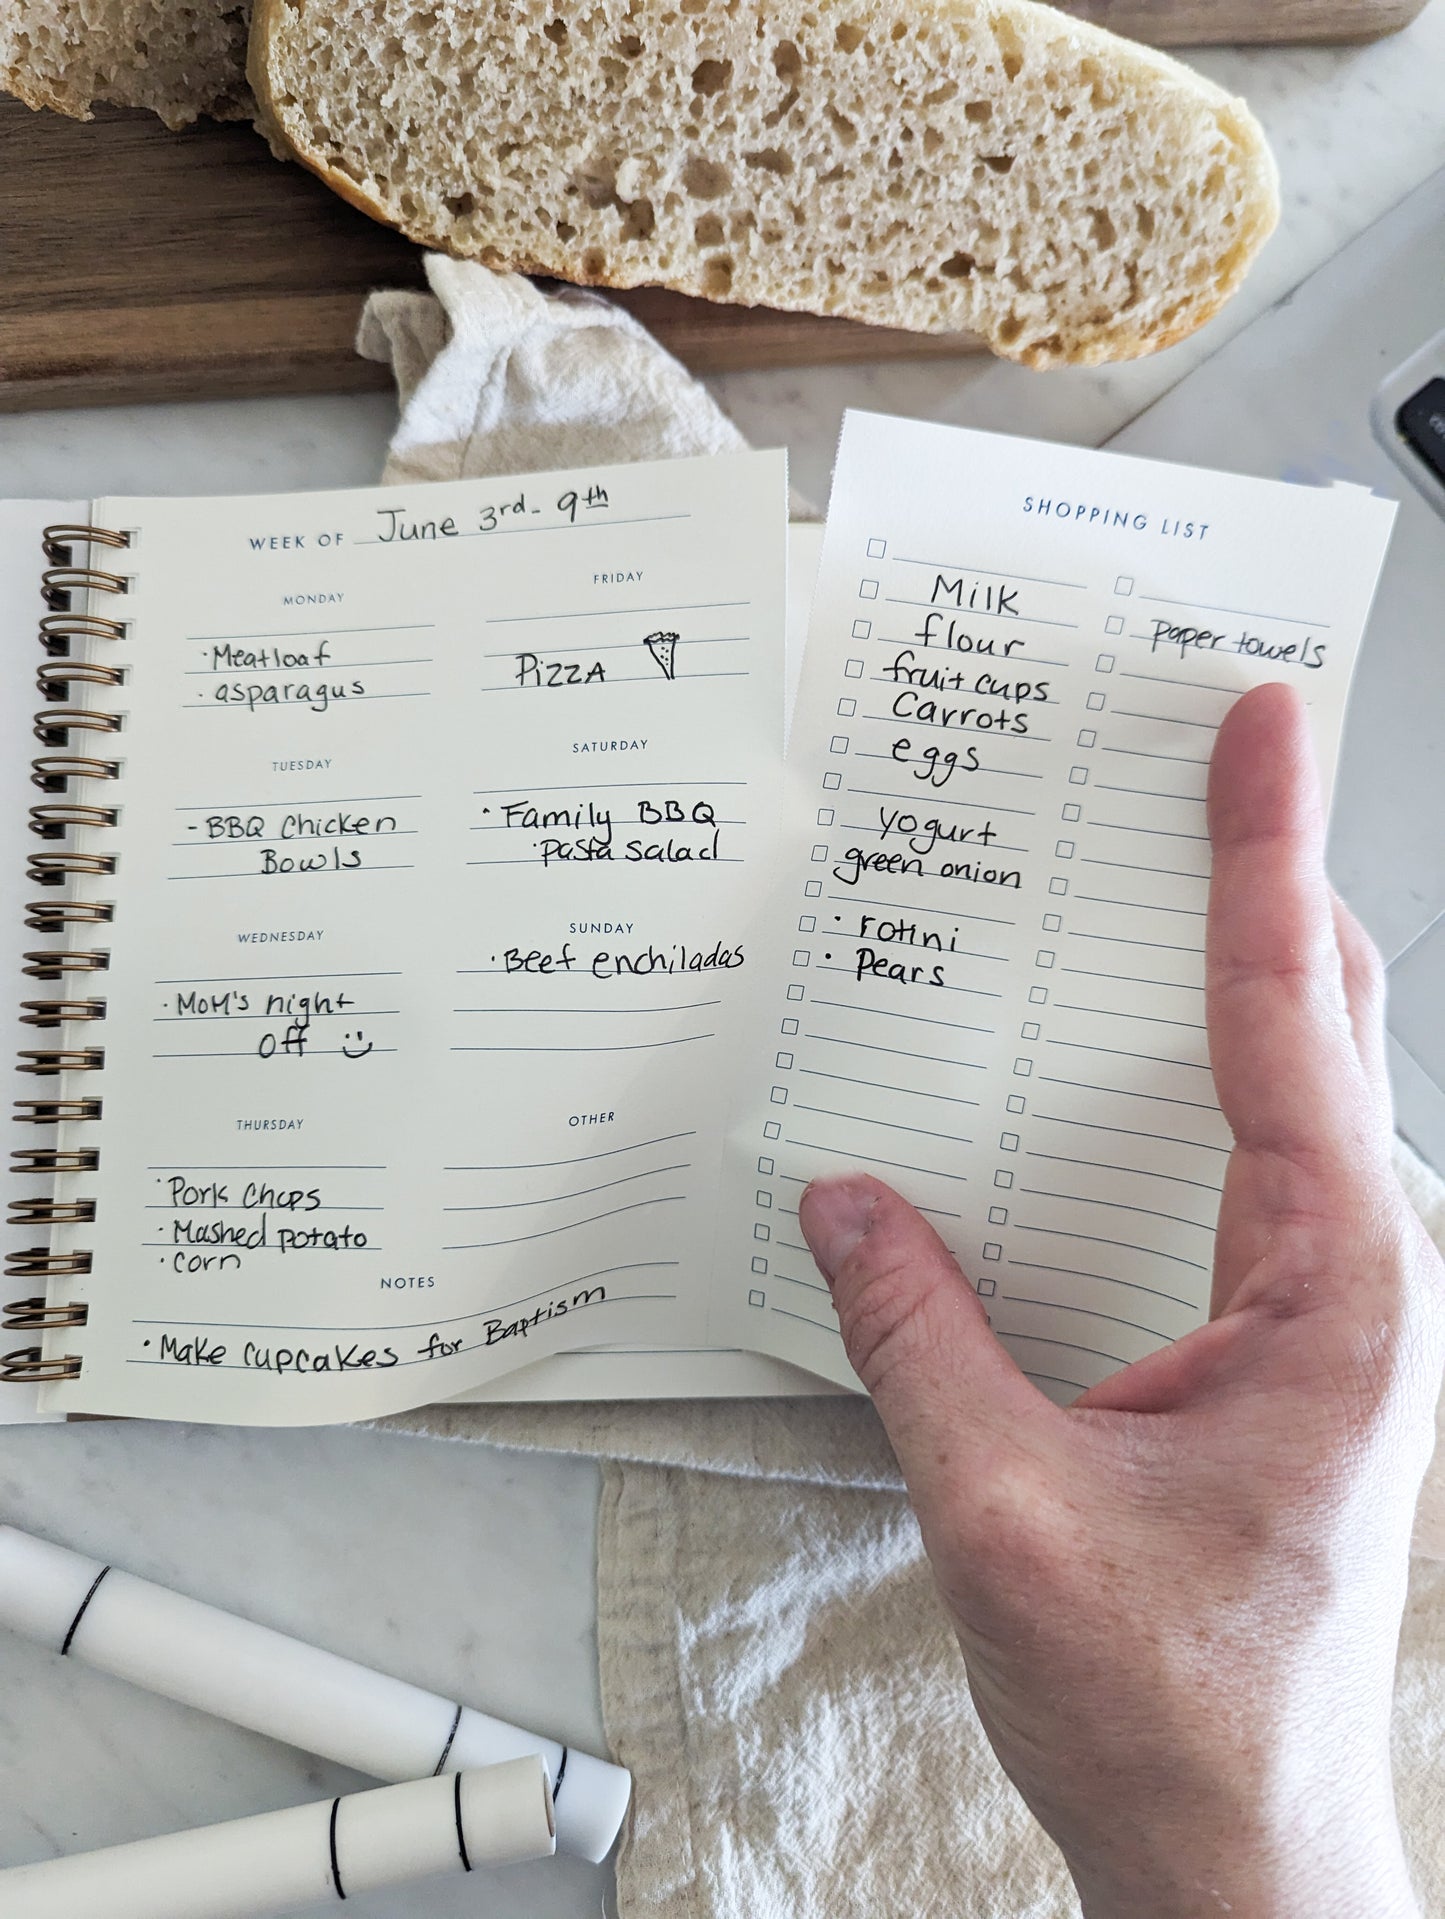 WEEK OF June 3rd - 9th
MONDAY
·Meatloaf
·asparagus
TUESDAY
-BBQ Chicken
Bowls
WEDNESDAY
·MOM's night
Off
THURSDAY
·Pork Chops
·Mashed potato
·corn
FRIDAY
PIZZA
SATURDAY
·Family BBQ
·pasta salad
SUNDAY
·Beef enchiladas
OTHER
NOTES
·Make cupcakes for Baptism
SHOPPING LIST
Milk
flour
fruit cups
Carrots
eggs
yogurt
green onion
· rotini
· Pears
paper towels